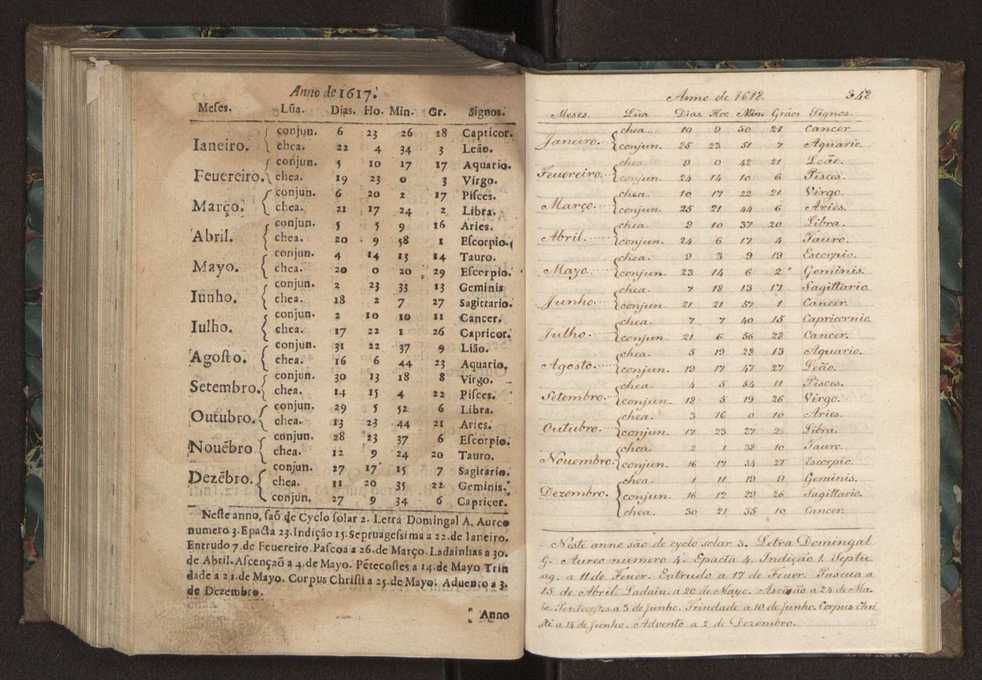 Anno de 1617.
Meſes. Lũa. Dias. Ho. Min. Gr. Signos.
Ianeiro. { conjun. 6 23 26 18 Capricor.
chea. 22 4 34 3 Leão.
Feuereiro. { conjun. 5 10 17 17 Aquario.
chea. 19 23 0 3 Virgo.
Março. { conjun. 6 20 2 17 Piſces.
chea. 21 17 24 2 Libra.
Abril. { conjun. 5 5 9 16 Aries.
chea. 20 9 58 1 Eſcorpio.
Mayo. { conjun. 4 14 13 14 Tauro.
chea. 20 0 20 29 Eſcorpio.
Iunho. { conjun. 2 23 35 13 Geminis
chea. 18 2 7 27 Sagittario.
Iulho. { conjun. 2 10 10 11 Cancer.
chea. 17 22 1 26 Capricor.
Agoſto. { conjun. 31 22 37 9 Lião.
chea. 16 6 44 23 Aquario.
Setembro. { conjun. 30 13 18 8 Virgo.
chea. 14 15 4 22 Piſces.
Outubro. { conjun. 29 5 52 6 Libra.
chea. 13 23 44 21 Aries.
Nouẽbro { conjun. 28 23 37 6 Eſcorpio.
chea. 12 9 24 20 Tauro.
Dezẽbro. { conjun. 27 17 15 7 Sagitario.
chea. 11 20 35 22 Geminis.
conjun. 27 9 34 6 Capricor.
Neſte anno, ſaõ de Cyclo ſolar 2. Letra Domingal A. Aureo
numero 3. Epacta 23. Indição 15. Septuageſſima a 22. de Ianeiro.
Entrudo 7. de Feuereiro. Paſcoa a 26. de Março. Ladainhas a 30.
de Abril. Aſcençaõ a 4. de Mayo. Pẽtecoſtes a 14. de Mayo Trin
dade a 21. de Mayo. Corpus Chriſti a 25. de Mayo. Aduento a 3.
de Dezembro.
Anno
Anno de 1618. 342
Meses. Lũa Dias. Hor. Min. Gráos Signos.
Janeiro. { chea. 10 9 50 21 Cancer
conjun. 25 23 51 7 Aquario.
Feuereiro. { chea. 9 0 42 21 Leão.
conjun. 24 14 10 6 Pisces.
Março. { chea. 10 17 22 21 Virgo.
conjun. 25 21 44 6 Aries.
Abril. { chea. 9 10 37 20 Libra.
conjun. 24 6 17 4 Tauro.
Mayo. { chea. 9 3 9 19 Escorpio.
conjun. 23 14 6 2 Geminis.
Junho. { chea. 7 18 13 17 Sagittario
conjun. 21 21 57 1 Cancer.
Julho. { chea. 7 7 40 15 Capricornio.
conjun. 21 6 56 28 Cancer.
Agosto. { chea. 5 19 28 13 Aquario.
conjun. 19 17 47 27 Leão.
Setembro. { chea. 4 5 54 11 Pisces.
conjun. 18 5 19 26 Virgo.
Outubro. { chea. 3 16 0 10 Aries.
conjun. 17 23 27 2 Libra.
Nouembro. { chea. 2 1 38 10 Tauro.
conjun. 16 17 34 27 Escorpio.
Dezembro. { chea. 1 11 19 9 Geminis.
conjun. 16 12 29 26 Sagittario.
chea. 30 21 35 10 Cancer.
Neste anno são de cyclo solar 3. Letra Domingal
G. Aureo numero 4. Epacta 4. Indição 1. Septu
ag. a 11 de Feuer. Entrudo a 17 de Feuer. Pascua a
15 de Abril. Ladain. a 20 de Mayo. Ascẽsão a 24 de Ma-
a 3 de Junho. Trindade a 10 de Junho. Corpus Chri
sti a 14 de Junho. Advento a 2 de Dezembro.